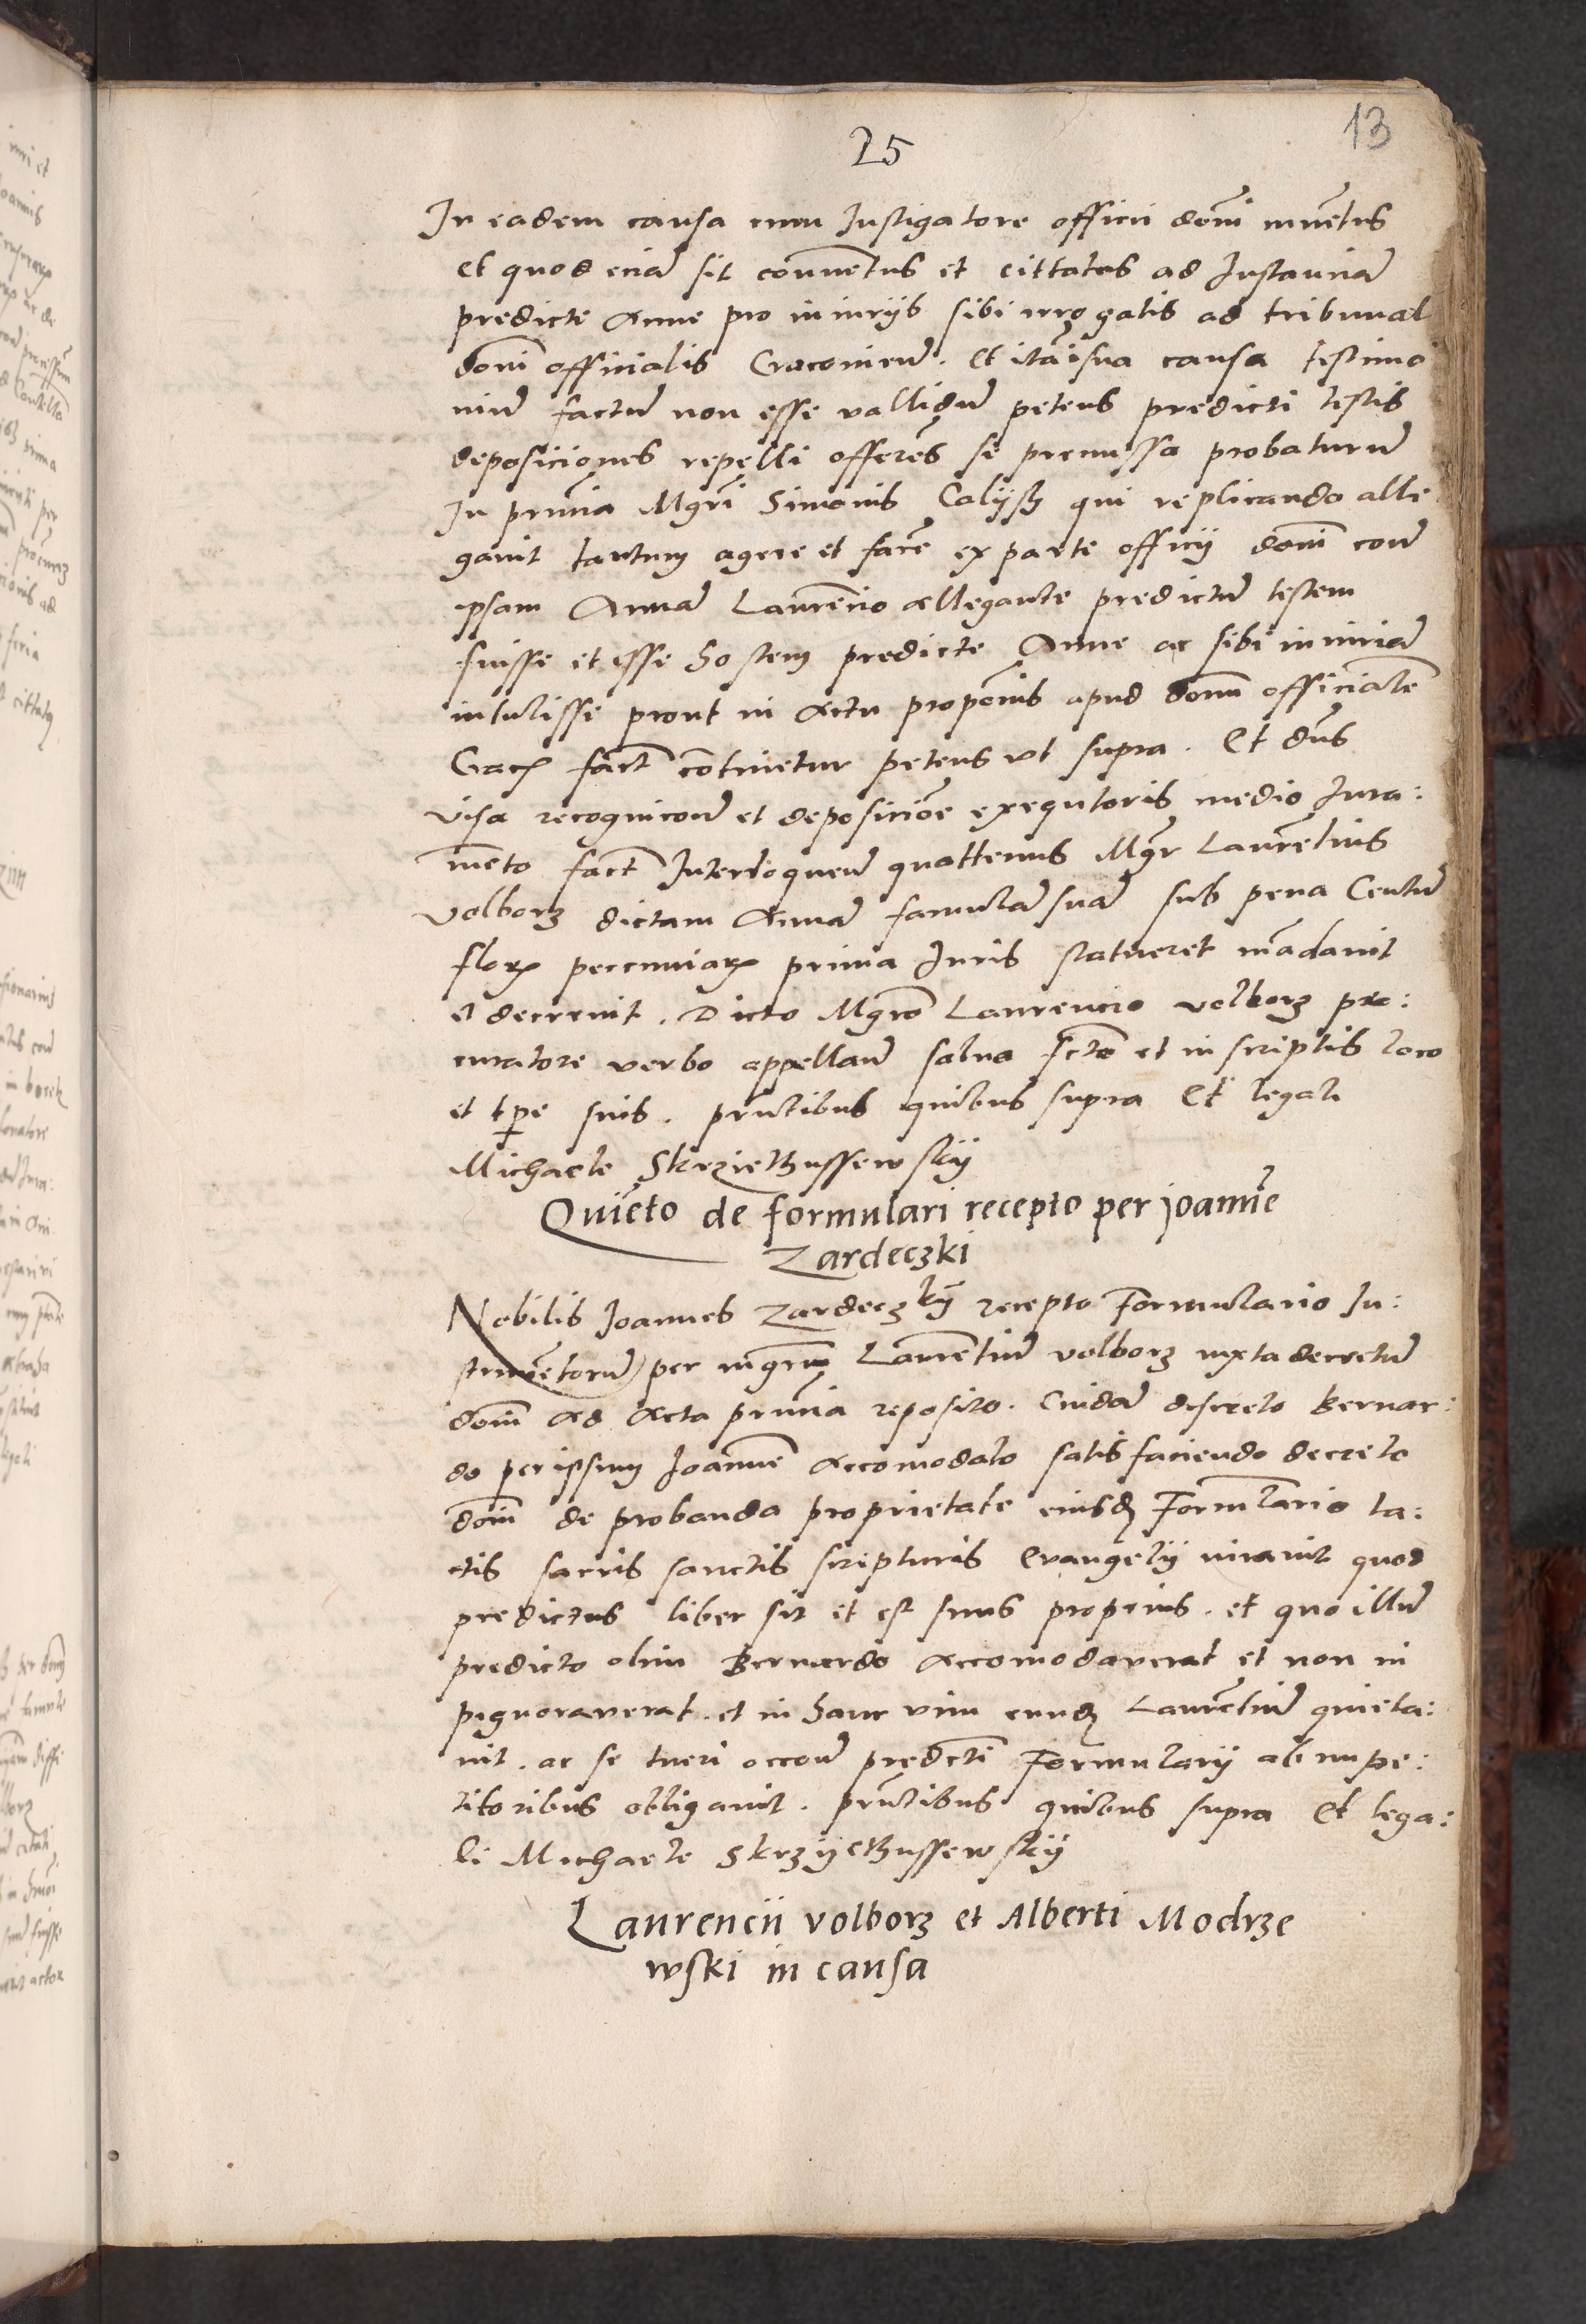 13
25
In eadem causa cum Instigatore officii domi inventus
et quod eciam sit conventus et cittatus ad Instanciam
predicte Anne pro iniuriis sibi irrogatis ad tribunal
domi officialis Cracovien. Et ita in sua causa testimo
nium factum non esse vallidum petens predicti testis
deposiciones repelli offerens se premissa probaturum
In presencia Mgri Simonis Calijsz qui replicando alle
gavit tantum agere et facere ex parte officij domi contra
ipsam Annam Laurencio allegante predictum testem
fuisse et esse hostem predicte Anne ac sibi iniuriam
intulisse prout in Actu propterea apud domi officialem
Crac fact continetur petens ut supra. Et dns
visa recognicione et deposicione exequtoris medio Iura:
mento fact Interloquendo quattenus Mgr Laurentius
volborz dictam Annam famulam suam sub pena Centum
flor peccuniar prima Iuris statueret mandavit
et decrevit. Dicto Mgro Laurencio volborz pro:
curatore verbo appellan salva facto et in scriptis loco
et tpe suis. prntibus quibus supra Et legali
Michaele Skrzietussewskij
Quieto de formulari recepto per joanne
Zardeczki
Nobilis Joannes Zardeczkij recepto Formulario In:
strumentorum per mgrum Laurentium volborz iuxta decretum
domi ad Acta presencia reposito. Cuidam discreto Bernar:
do per ipsum Joannem Accomodato satisfaciendo decreto
domi de probanda proprietate eiusdem Formlario ta:
ctis sacris sanctis scripturis Evangelij iuravit quod
predictus liber sit et est suus proprius. et quo illum
predicto olim Bernardo Accomodaverat et non in
pignoraverat. et in hanc vim eundem Laurentium quieta:
vit. ac se tueri occon predicti Formularij ab impe:
titoribus obligavit. prntibus quibus supra Et lega:
li Michaele Skrzijetussewskij
Laurencii volborz et Alberti Modrze
wski in causa